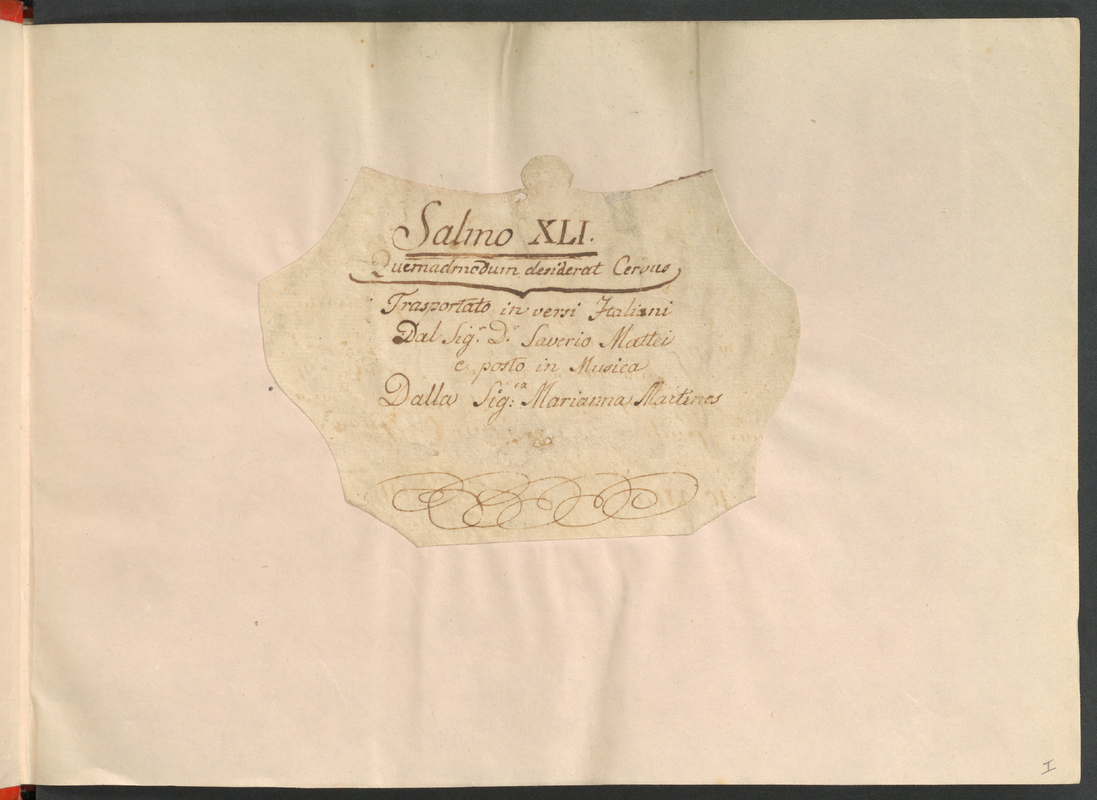 Salmo XLI.
Quemadmodum desiderat Cervus
Trasportato in versi Italiani
Dal Sig.r D.r Saverio Mattei
e posto in Musica
Dalla Sig:ra Marianna Martines
I